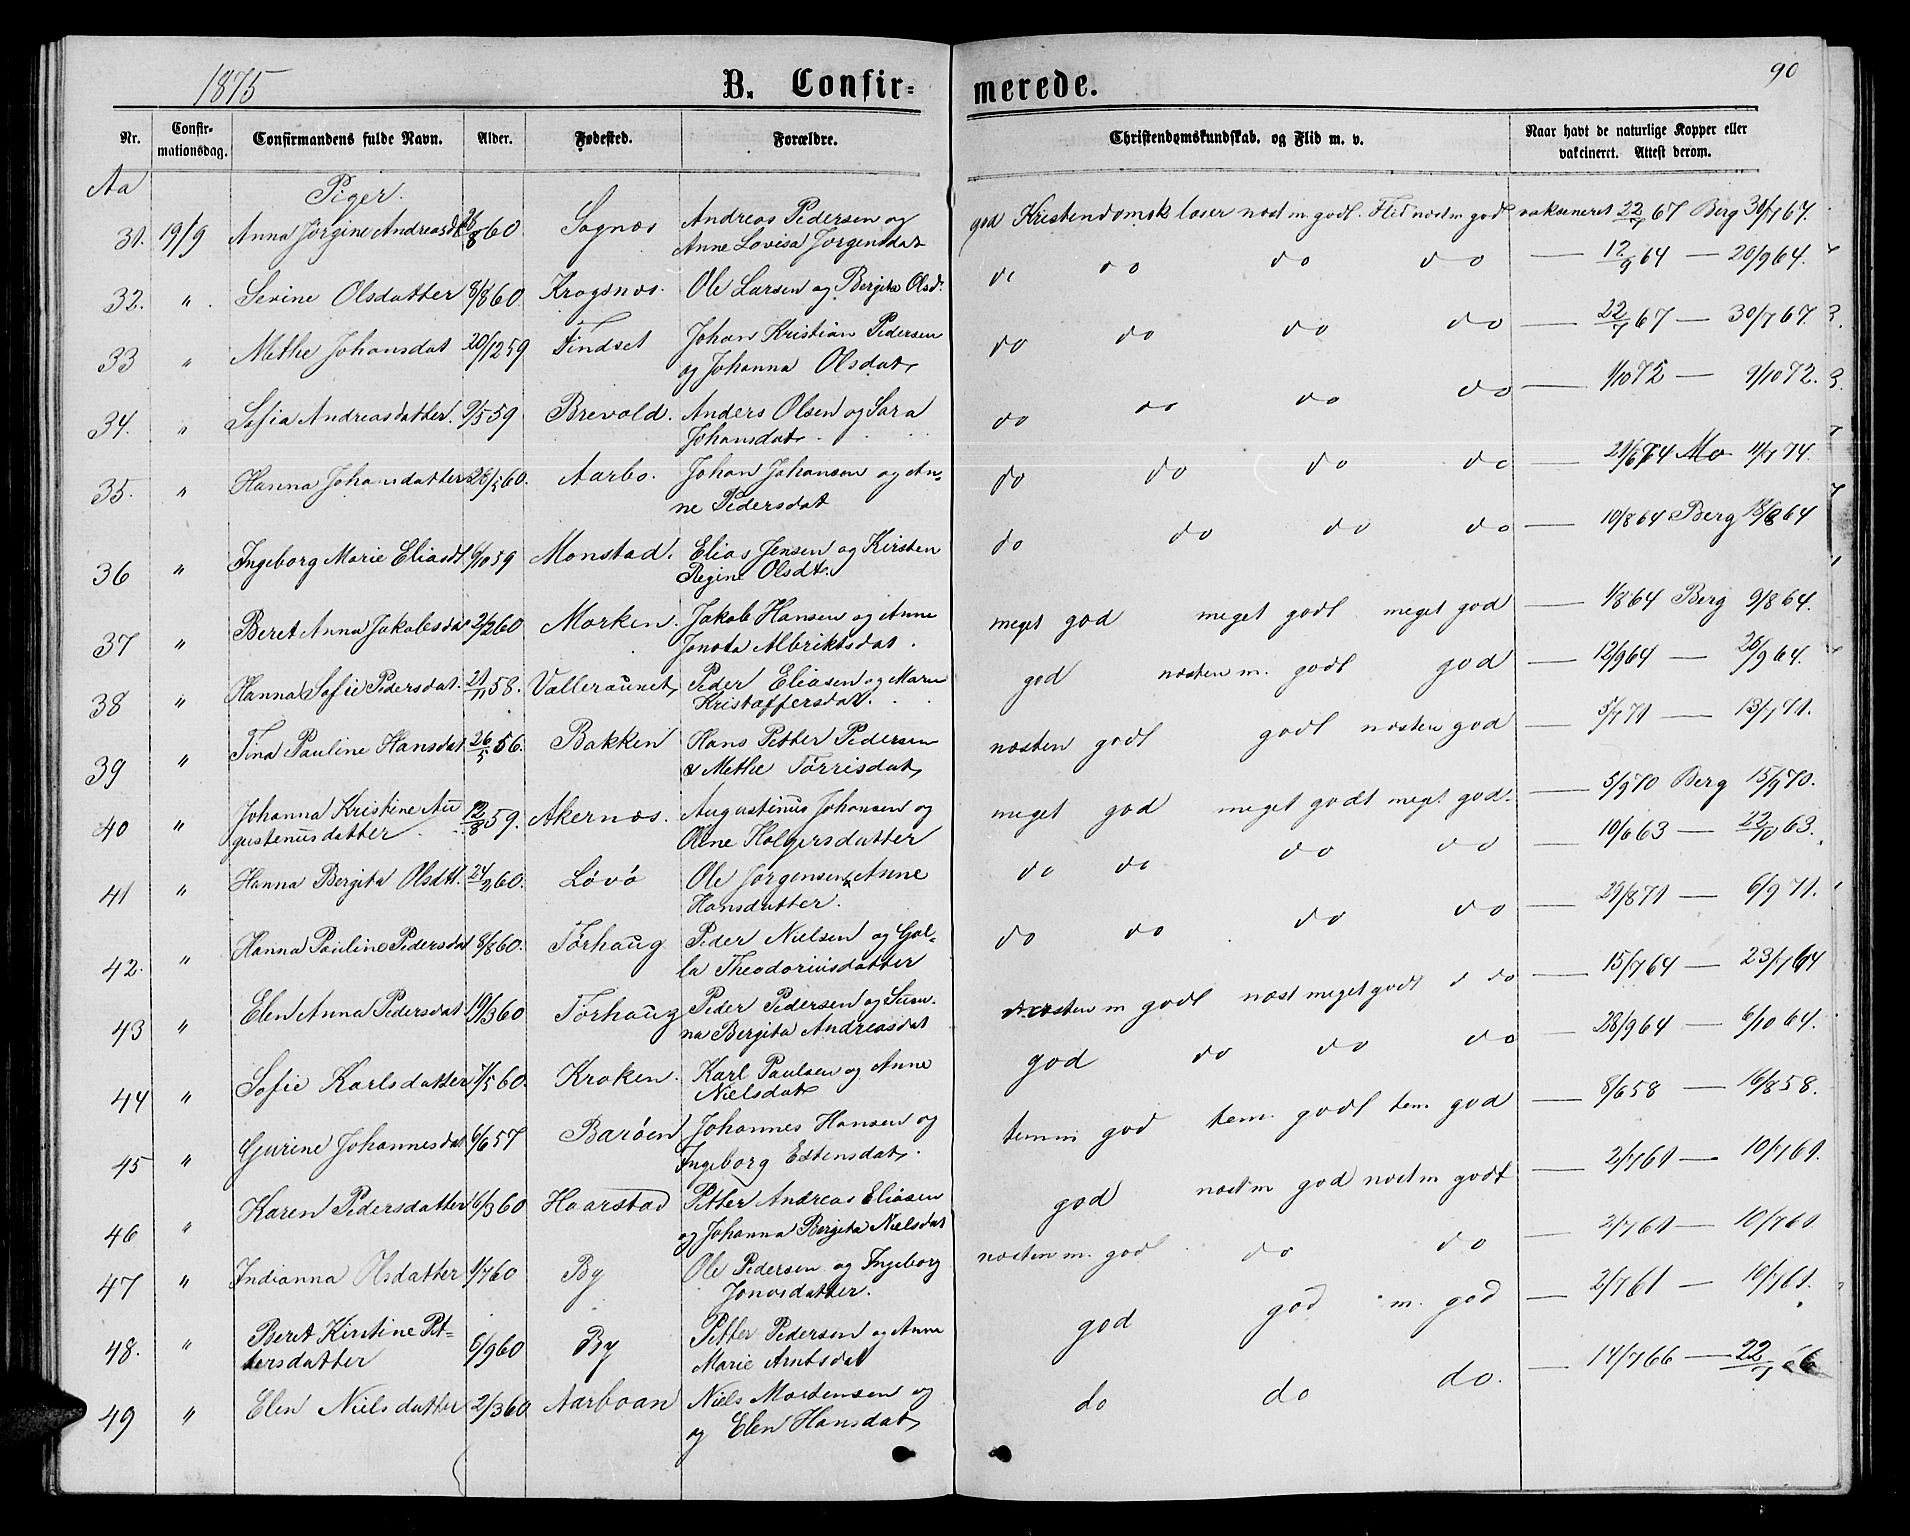 1875
B. Confir-
merede.
90
Nr. Confir-mationsdag. Confirmandens fulde Navn. Alder. Fødested. Forældre. Christendomskundskab, og Flid m. v. Naar havt de naturlige Kopper eller vakcineret. Attest derom.
Aa Piger.
31. 19/9 Anna Jørgine Andreasdt 26/8 60 Sagnæs Andreas Pedersen og
Anne Lovisa Jørgensdat
god Kristendomsk læser næst m godt. Flid næst m god vakcineret 22/7 67 Berg 30/7 67.
32. " Sevine Olsdatter 8/8 60. Kragsnæs. Ole Larsen og Bergita Olsd.
do do do do — 12/9 64 — 20/9 64.
33 " Methe Johansdat 20/12 59 Findset Johan Kristian Pedersen
og Johanna Olsdat
do do do do — 22/7 67 — 30/7 67.
34. " Sofia Andreasdatter. 9/5 59 Brevold. Anders Olsen og Sara
Johansdat
do do do do — 1/10 72 — 9/10 72.
35. " Hanna Johansdatter 26/5 60. Aarbo. Johan Johansen og An-
ne Pedersdat
do do do do — 21/6 74 Mo 11/7 74.
36 " Ingeborg Marie Eliasdt 6/10 59 Monstad. Elias Jensen og Kirsten
Regine Olsdt.
do do do do — 10/8 64 Berg 18/8 64
37 " Beret Anna Jakobsdat 2/2 60 Morken. Jakob Hansen og Anne
Joneta Albriktsdat.
meget god meget godt meget god — 1/8 64 Berg 9/8 64.
38 " Hanna Sofie Pedersdat. 21/11 58. Valleraunet, Peder Eliasen og Maren
Kristoffersdat.
god næsten m. godt god — 12/9 64 — 26/9 64.
39 " Tina Pauline Hansdat 26/5 56. Bakken Hans Petter Pedersen
& Methe Tørrisdat
næsten godt godt næsten god — 5/7 71 — 13/7 71.
40 " Johanna Kristine Au
gustenusdatter 12/8 59. Akernæs. Augustinus Johansen og
Oline Holgersdatter
meget god meget godt meget god. — 5/9 70 Berg 15/9 70.
41 " Hanna Bergita Olsdtt. 24/2 60. Løvø Ole Jørgensen & Anne
Hansdatter.
do do do do — 10/6 63 — 22/10 63.
42. " Hanna Pauline Pedersdat 8/8 60. Førhaug Peder Nielsen og Gol-
la Theodoriusdatter
do do do do — 29/8 71 — 6/9 71.
43 " Elen Anna Pedersdat 19/3 60 Førhaug Peder Pedersen og Susn-
na Bergita Andreasdat
næsten m godt næst meget godt do — 15/7 64 — 23/7 64
44 " Sofie Karlsdatter 7/5 60. Kroken. Karl Paulsen og Anne
Nielsdat
god do do do — 28/9 64 — 6/10 64.
45 " Gurine Johannesdat 6/6 57 Barøen Johannes Hansen og
Ingeborg Estensdat.
temm god tem. godt tem. god — 8/6 58 — 16/8 58.
46 " Karen Pedersdatter 16/3 60 Haarstad Petter Andreas Eliasen
og Johanna Bergita Nielsdat
god næst m god næst m godt — 2/7 61 — 10/7 61.
47 " Indianna Olsdatter 1/7 60 By Ole Pedersen og Ingeborg
Jonasdatter.
næsten m. godt do do — 2/7 61 — 10/7 61
48. " Beret Kirstine Pet-
tersdatter 6/9 60 By Petter Pedersen og Anne
Marie Arntsdat
god god m. god — 2/7 61 — 10/7 61.
49 " Elen Nielsdatter 2/3 60 Aarboan Niels Mortensen og
og Elen Hansdat
do do do. — 14/7 66 — 22/7 66